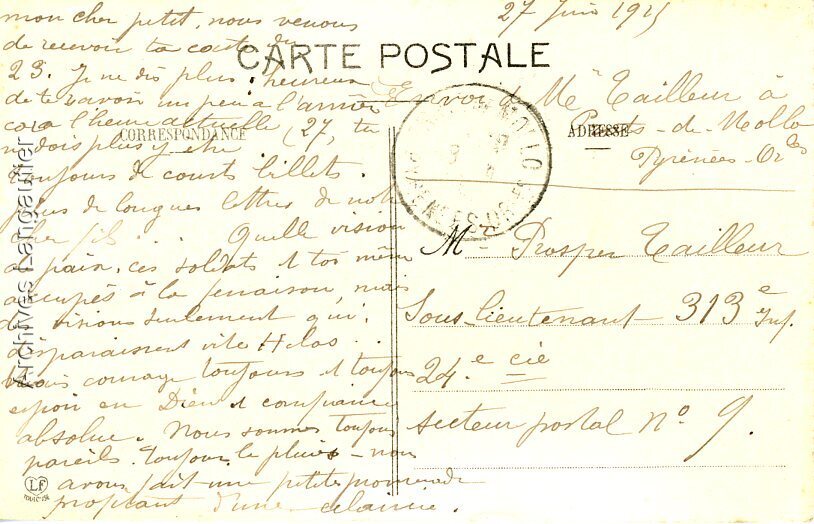 27 Juin 1915
mon cher petit, nous venons
de recevoir ta carte du
CARTE POSTALE
23. Je ne dis plus : heureux
de te savoir un peu à l'arrière
car à l'heure actuelle (27, tu
CORRESPONDANCE
ne dois plus y être
Toujours de courts billets.
plus de longues lettres de notre
cher fils . . . Quelle vision
de paix, ces soldats & toi même
occupés à la fenaison, mais
de visions seulement qui
disparaissent vite Hélas . . .
courage toujours & toujours
espoir en Dieu & confiance
absolue. Nous sommes toujours
pareils. Toujours la pluie - nous
avons fait une petite promenade
profitant d'une éclaircie.
Envoi de Me Tailleur à
ADRESSE
Prats-de-Mollo
Pyrénées-Ores
Mr Prosper Tailleur
Sous-lieutenant 313e Inf.
24.e cie
secteur postal no 9.
Archives Lancaulier
LF